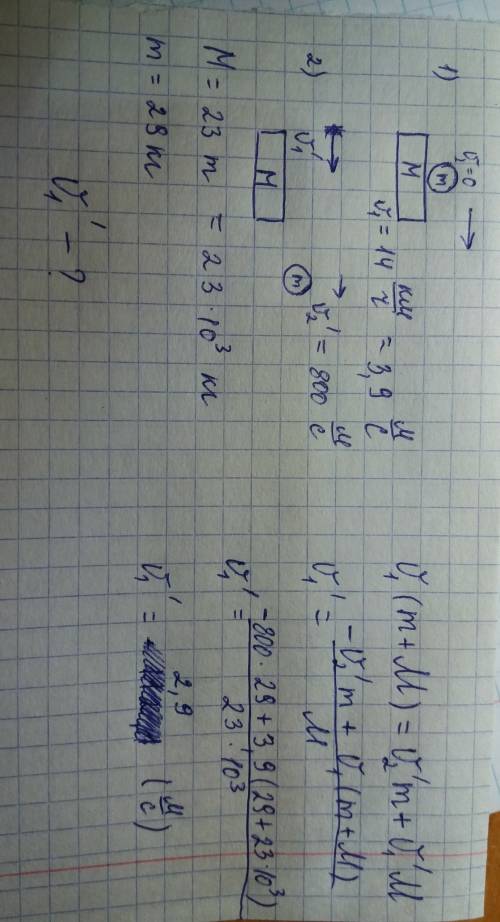 1)
v₁=0
m
M
v₁ = 14 км/ч = 3,9 м/с
2)
v₁'
M
m
v₂' = 800 м/с
M = 23 т = 23·10³ кг
m = 29 кг
v₁' - ?
v₁(m+M) = v₂'m + v₁'M
v₁' = (-v₂'m + v₁(m+M))/M
v₁' = (-800·29 + 3,9(29+23·10³))/(23·10³)
v₁' = 2,9 (м/с)